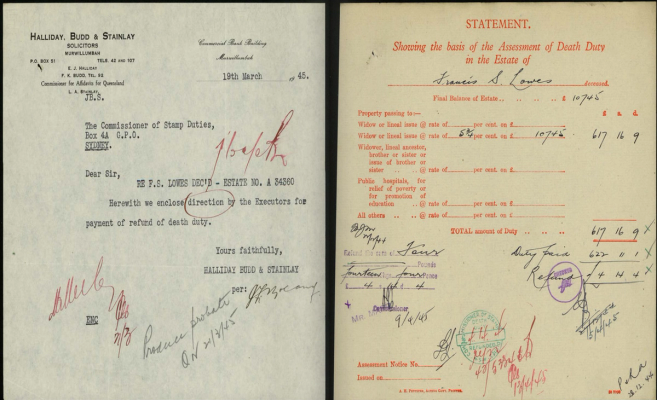 HALLIDAY, BUDD & STAINLAY
SOLICITORS
MURWILLUMBAH
P.O. BOX 51 TELS. 42 AND 107
E. J. HALLIDAY
F. K. BUDD, TEL. 52
Commissioner for Affidavits for Queensland
L. A. STAINLAY
Commercial Bank Building
Murwillumbah
19th March 1945.
JB.S.
The Commissioner of Stamp Duties,
Box 4A G.P.O.
SYDNEY.
Dear Sir,
RE F.S. LOWES DEC'D - ESTATE NO. A 34360
Herewith we enclose direction by the Executors for
payment of refund of death duty.
Yours faithfully,
HALLIDAY BUDD & STAINLAY
per:
ENC
Produce probate
STATEMENT.
Showing the basis of the Assessment of Death Duty
in the Estate of
Francis S. Lowes deceased.
Final Balance of Estate .. .. .. .. £ 10745
Property passing to:— £ s. d.
Widow or lineal issue @ rate of per cent. on £
Widow or lineal issue @ rate of 5¾ per cent. on £ 10745 617 16 9
Widower, lineal ancestor,
brother or sister or
issue of brother or
sister .. .. @ rate of per cent. on £
Public hospitals, for
relief of poverty or
for promotion of
education .. .. @ rate of per cent. on £
All others .. @ rate of per cent. on £
TOTAL amount of Duty .. 617 16 9 X
Duty paid 622 11 1 X
Refund the sum of Four Pounds
Refund £ 4 14 4 X
Fourteen Four Pence
£ 4 14 4
Commissioner.
9/4/45
Assessment Notice No.
Issued on